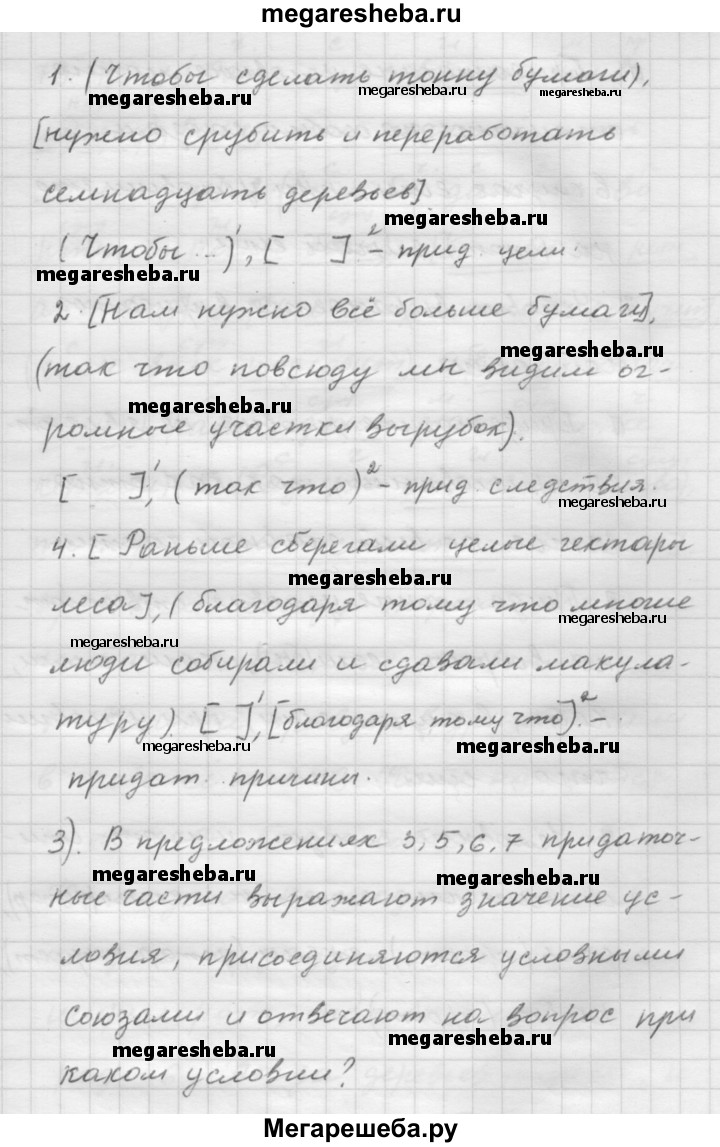 megaresheba.ru
1. (Чтобы сделать тонну бумаги),
megaresheba.ru megaresheba.ru megaresheba.ru
[нужно срубить и переработать
семнадцать деревьев]
megaresheba.ru
(Чтобы ...)¹, [ ]² – прид. цели.
megaresheba.ru
2. [Нам нужно всё больше бумаги],
megaresheba.ru
(так что повсюду мы видим ог-
megaresheba.ru
ромные участки вырубок).
[ ]¹, (так что)² – прид. следствия.
megaresheba.ru
4. [Раньше сберегали целые гектары
megaresheba.ru
леса], (благодаря тому что многие
megaresheba.ru
megaresheba.ru
люди собирали и сдавали макула-
туру). [ ]¹, [благодаря тому что]². –
megaresheba.ru megaresheba.ru
придат. причины.
3). В предложениях 3, 5, 6, 7 придаточ-
megaresheba.ru megaresheba.ru
ные части выражают значение ус-
ловия, присоединяются условными
megaresheba.ru
союзами и отвечают на вопрос при
megaresheba.ru megaresheba.ru
каком условии?
Мегарешеба.ру